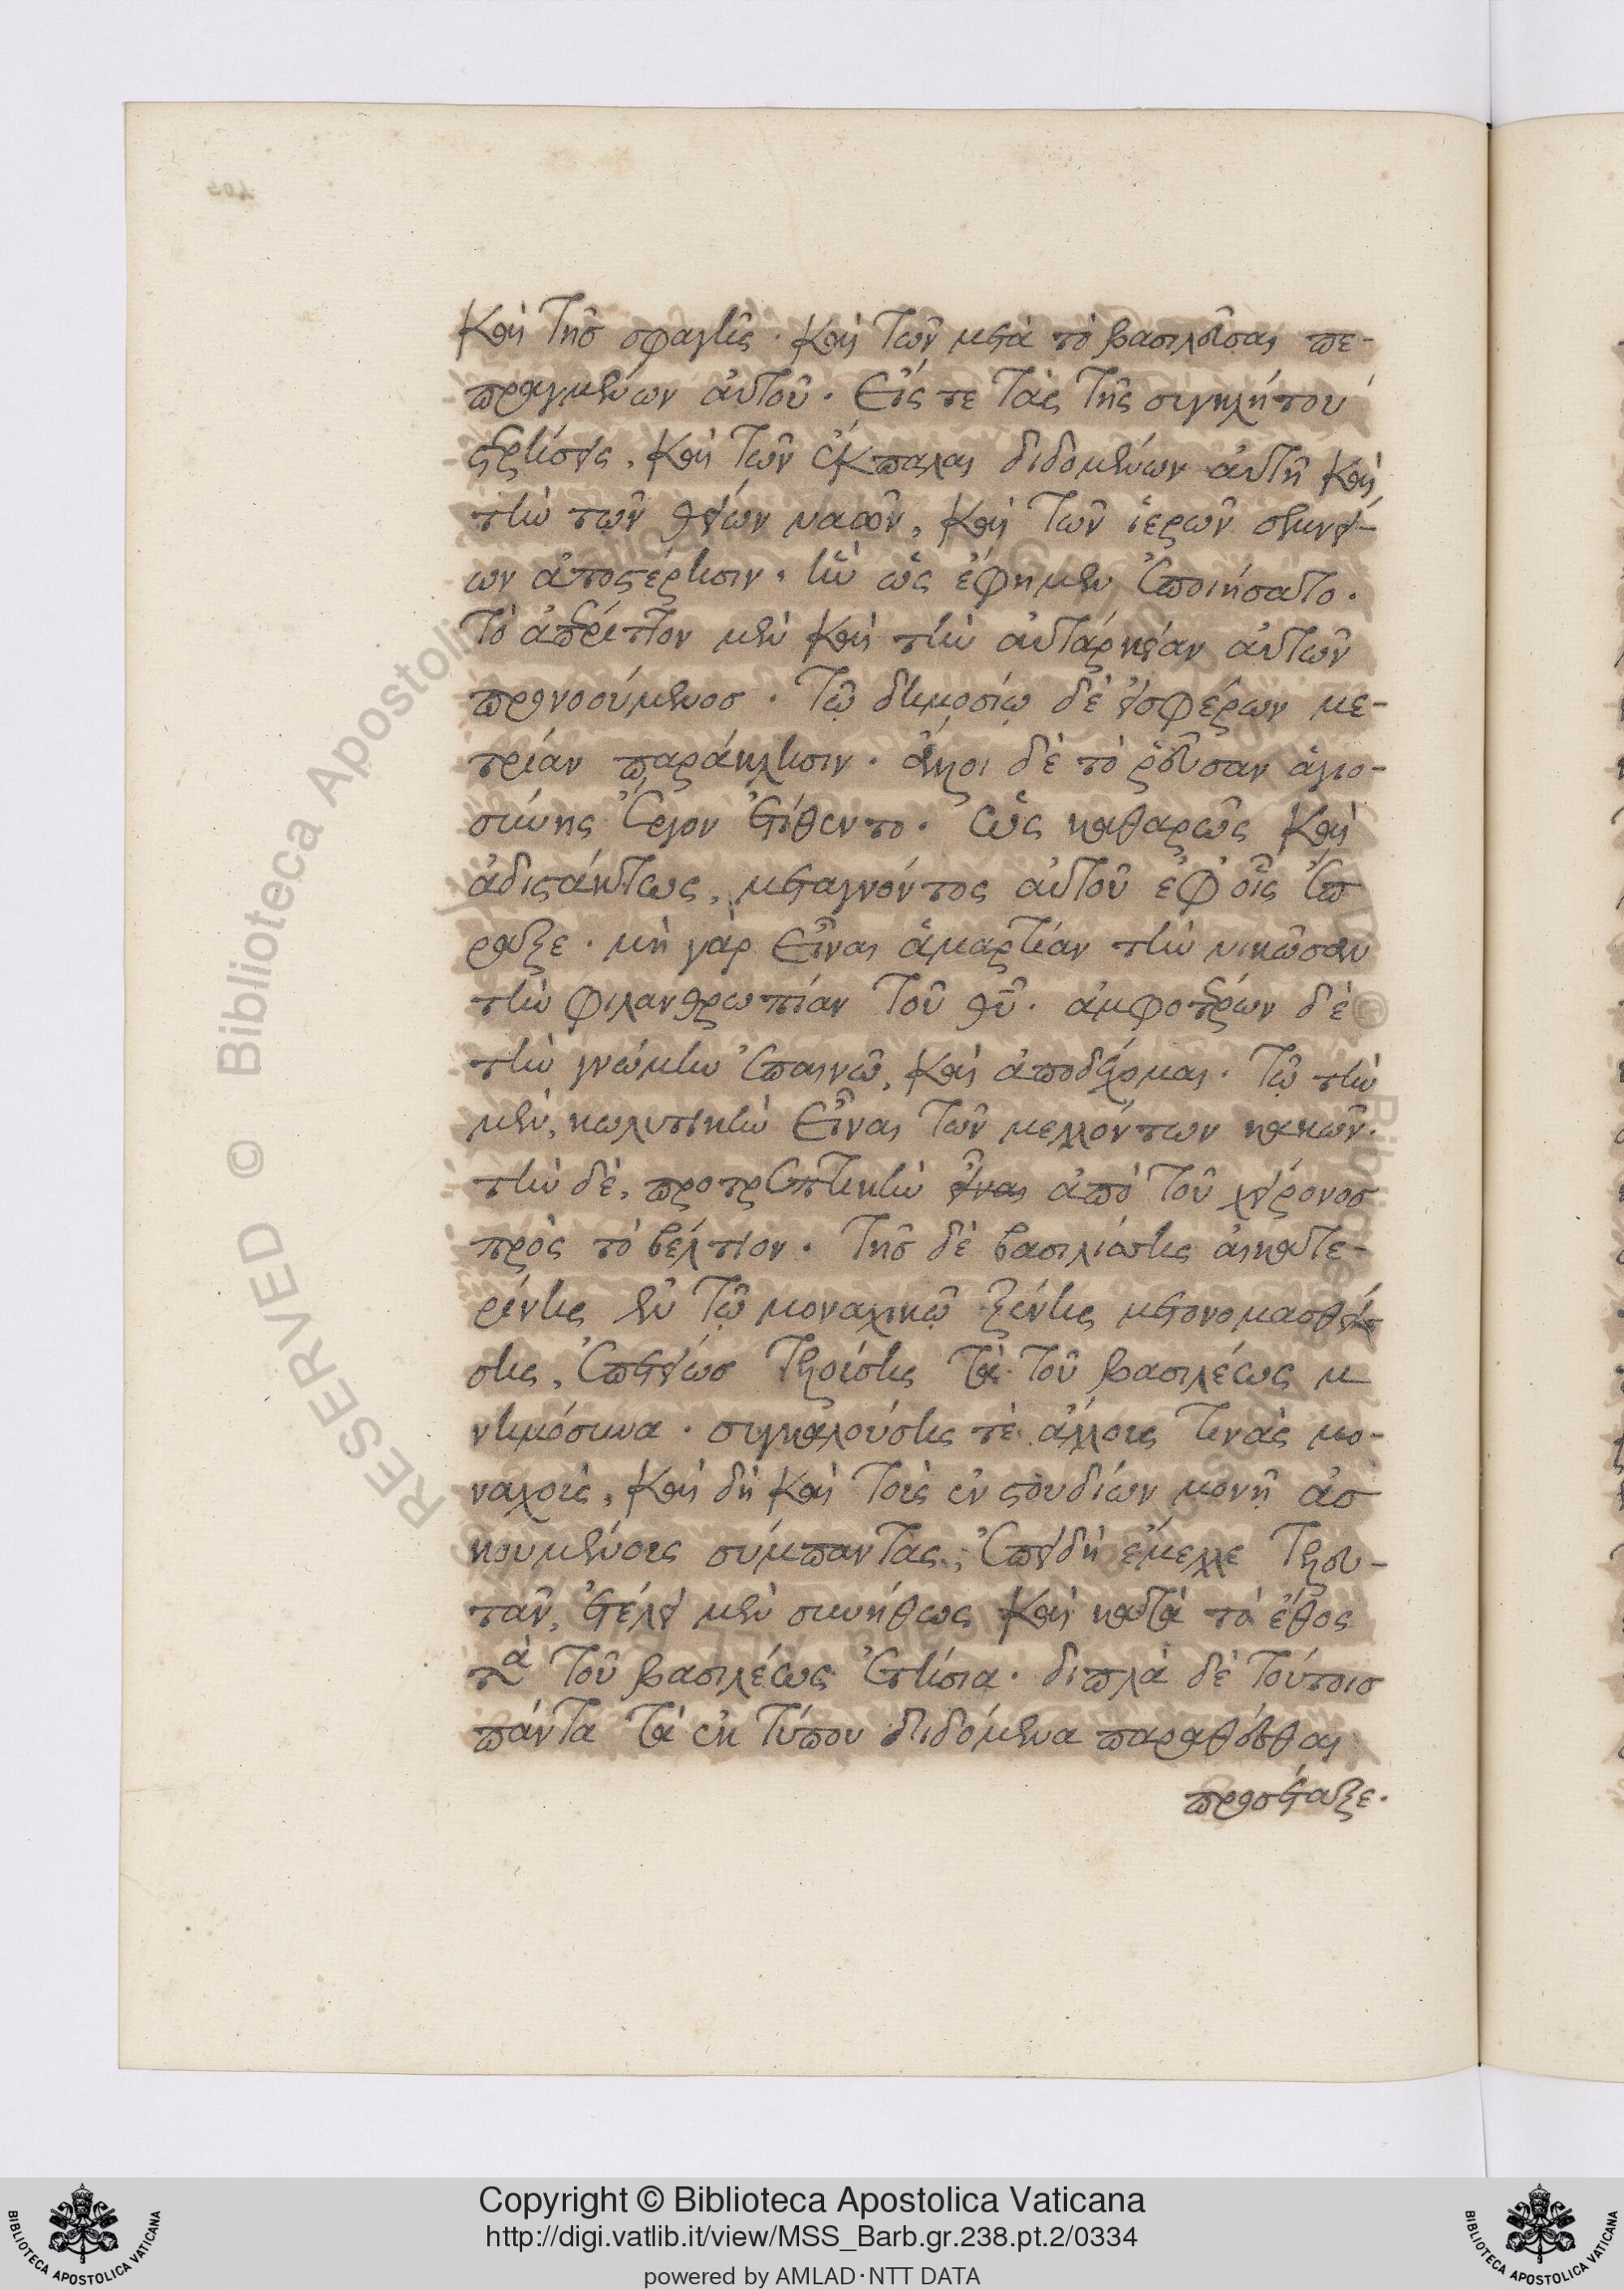 καὶ τῆς σφαγῆς. καὶ τῶν μετὰ τὸ βασιλεῦσαι πε-
πραγμένων αὐτοῦ. εἴς τε τὰς τῆς συγκλήτου
στερήσεις, καὶ τῶν ἐκπαλαι διδομένων αὐτῇ καὶ
τὴν τῶν θείων ναῶν, καὶ τῶν ἱερῶν σκηνεί-
ων ἀποστέρησιν. ἣν ὡς ἔφημεν ἐποιήσατο.
τὸ ἀπέριττον μὲν καὶ τὴν αὐτάρκειαν αὐτῶν
προνοούμενος. τῷ δημοσίῳ δὲ εἰσφέρων με-
τρίαν παράκλησιν. ἔνιοι δὲ τὸ ῥεῦσαν ἁγιο-
σύνης ἔργον ἐτίθεντο. ὡς καθαρῶς καὶ
ἀδιστάκτως, μεταγνόντος αὐτοῦ ἐφ' οἷς ἔπ
ραξε. μὴ γὰρ εἶναι ἁμαρτίαν τὴν νικῶσαν
τὴν φιλανθρωπίαν τοῦ θῦ. ἀμφοτέρων δὲ
τὴν γνώμην ἐπαινῶ, καὶ ἀποδέχομαι. τῷ τὴν
μὲν, κωλυτικὴν εἶναι τῶν μελλόντων κακῶν.
τὴν δὲ, προτρεπτικὴν εἶναι ἀπὸ τοῦ χείρονος
πρὸς τὸ βέλτιον. τῆς δὲ βασιλίσσης αἰκατε-
ρίνης ἐν τῷ μοναχικῷ ξένης μετονομασθεί
σης, ἐπετείως τηρούσης τὰ τοῦ βασιλέως μ
νημόσυνα. συγκαλούσης τὲ ἄλλους τινὰς μο-
ναχοὺς, καὶ δὴ καὶ τοὺς ἐν στουδίων μονῇ ἀσ
κουμένους σύμπαντας, ἐπειδὴ ἔμελλε τελευ-
τᾶν, ἐτέλει μὲν συνήθως καὶ κατὰ τὸ ἔθος
τὰ τοῦ βασιλέως ἐτήσια. διπλὰ δὲ τούτοις
πάντα τὰ ἐκ τύπου διδόμενα παραθέσθαι
προσέταξε.
Copyright © Biblioteca Apostolica Vaticana
http://digi.vatlib.it/view/MSS_Barb.gr.238.pt.2/0334
powered by AMLAD·NTT DATA